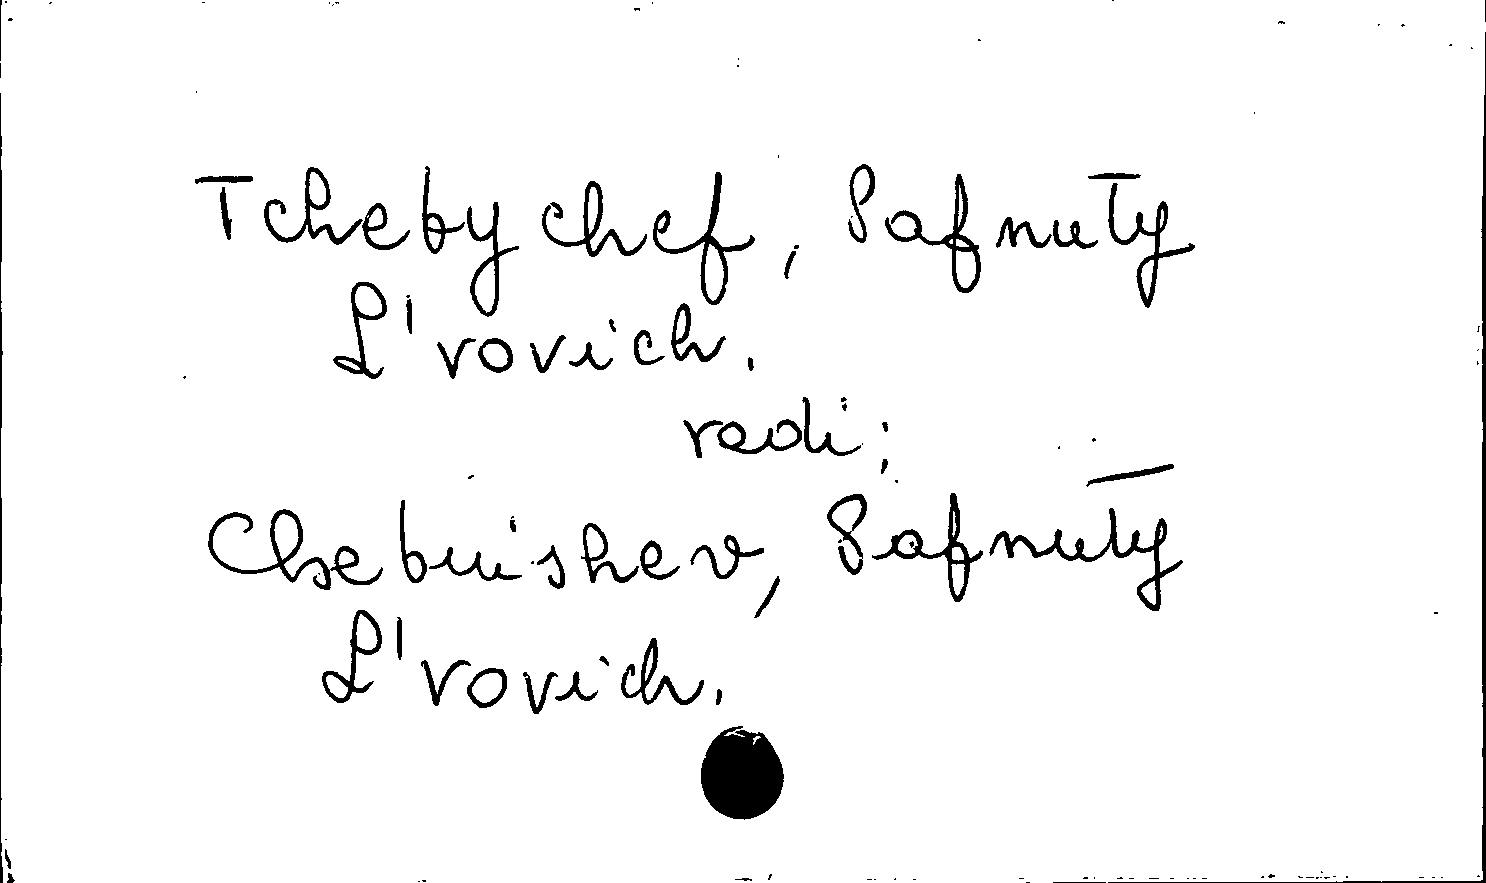 Tchebychef, Pafnuty
L'vovich.
vedi:
Chebuishev, Pafnuty
L'vovich.